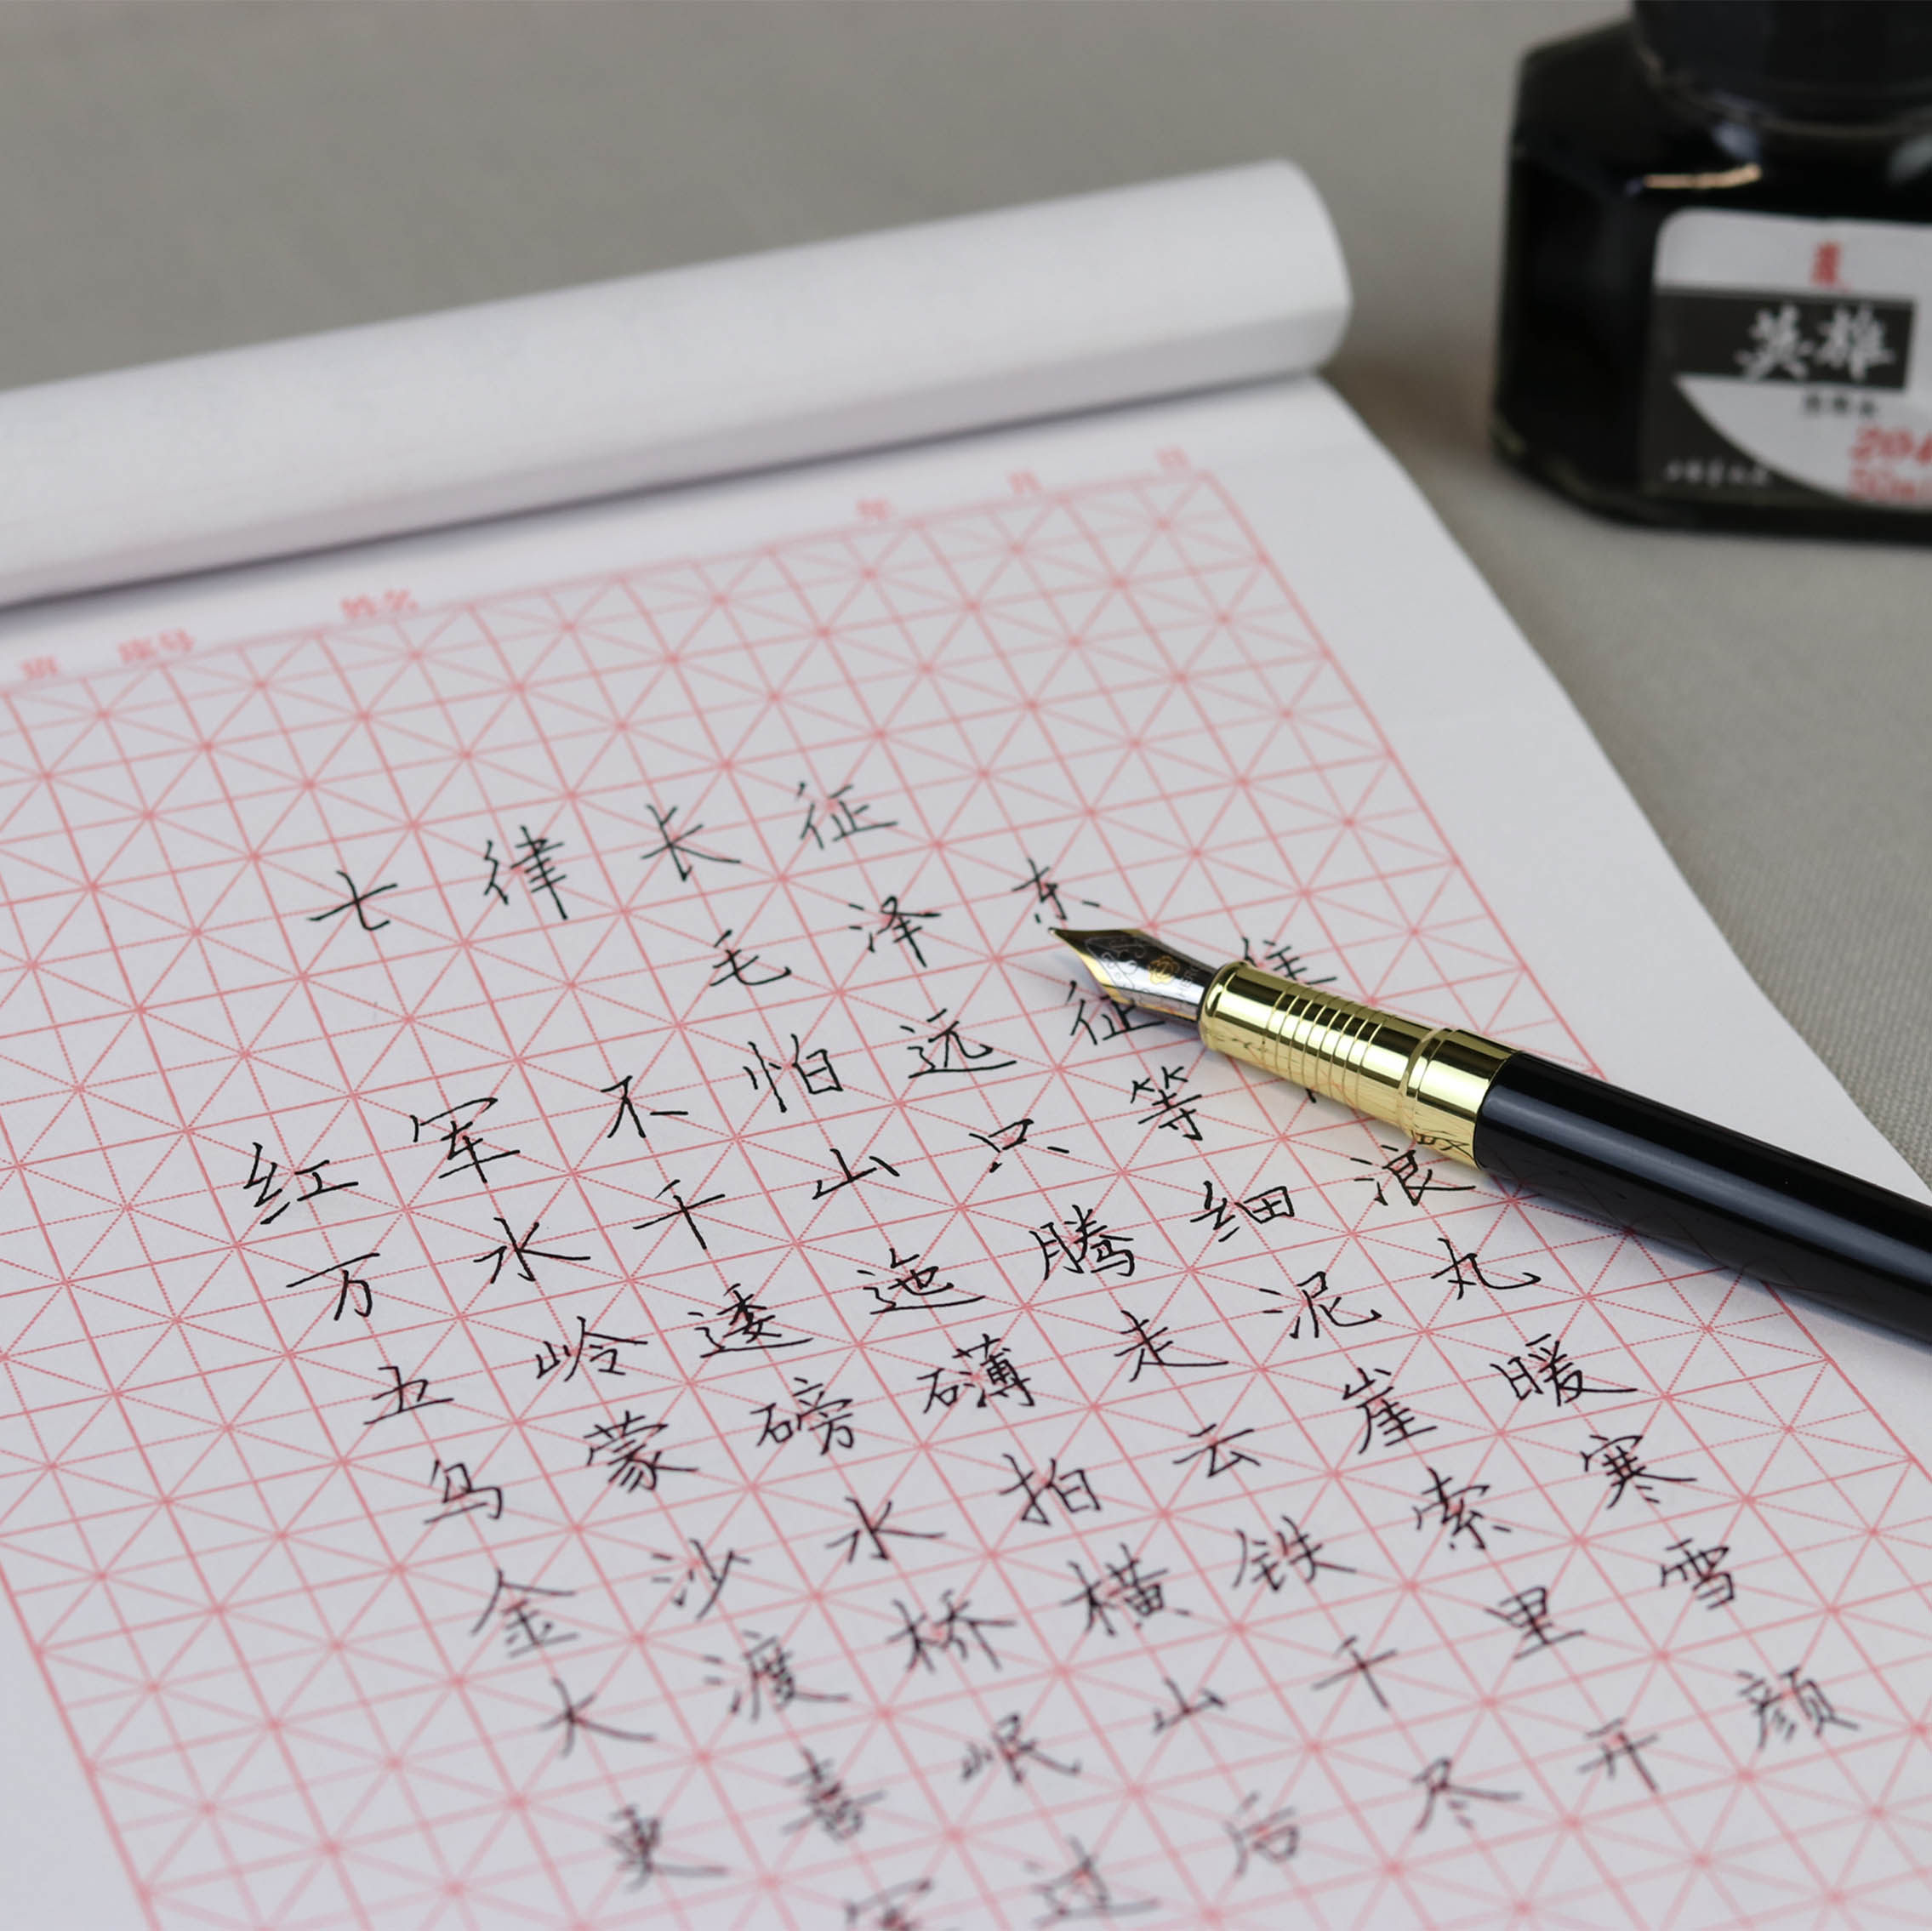 班 座号 姓名 年 月 日
七律长征
毛泽东
红军不怕远征难
万水千山只等
五岭逶迤腾细浪
乌蒙磅礴走泥丸
金沙水拍云崖暖
大渡桥横铁索寒
更喜岷山千里雪
军过后尽开颜
英雄